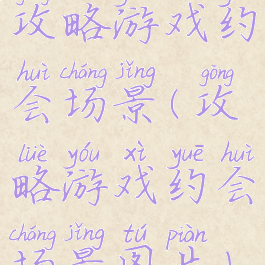 攻略游戏约
huì chǎng jǐng gōng
会场景(攻
lüè yóu xì yuē huì
略游戏约会
chǎng jǐng tú piàn
场景图片)